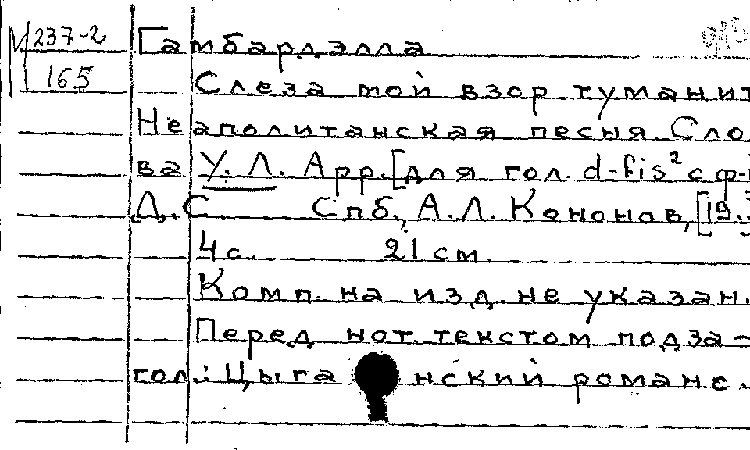 М 237-2
165
Гамбарделла
Слеза мой взор туманит
Неаполитанская песня. Сло-
ва У. Л. Арр. [для гол. d-fis² с ф-
Д. С. Спб., А. Л. Кононов, [19
4 с. 21 см.
Комп. на изд. не указан.
Перед нот. текстом подза-
гол.: Цыганский романс.